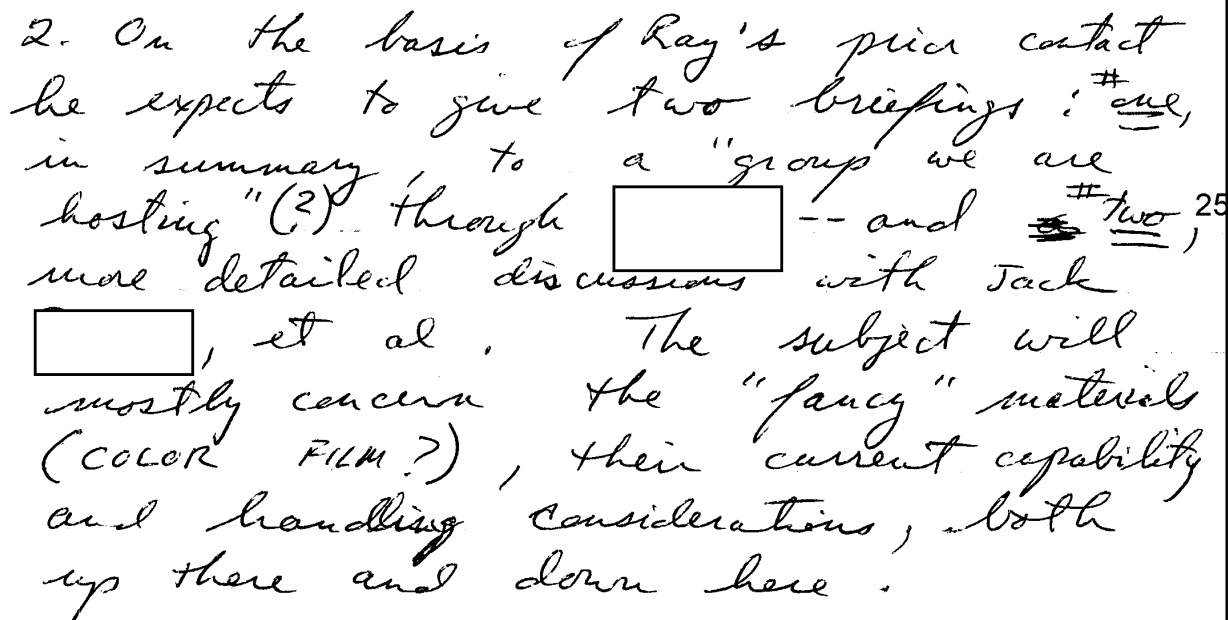 2. On the basis of Ray's prior contact
he expects to give two briefings: #one,
in summary, to a "group we are
hosting"(?) through -- and #two, 25
more detailed discussions with Jack
, et al. The subject will
mostly concern the "fancy" materials
(COLOR FILM?), their current capability
and handling considerations, both
up there and down here.